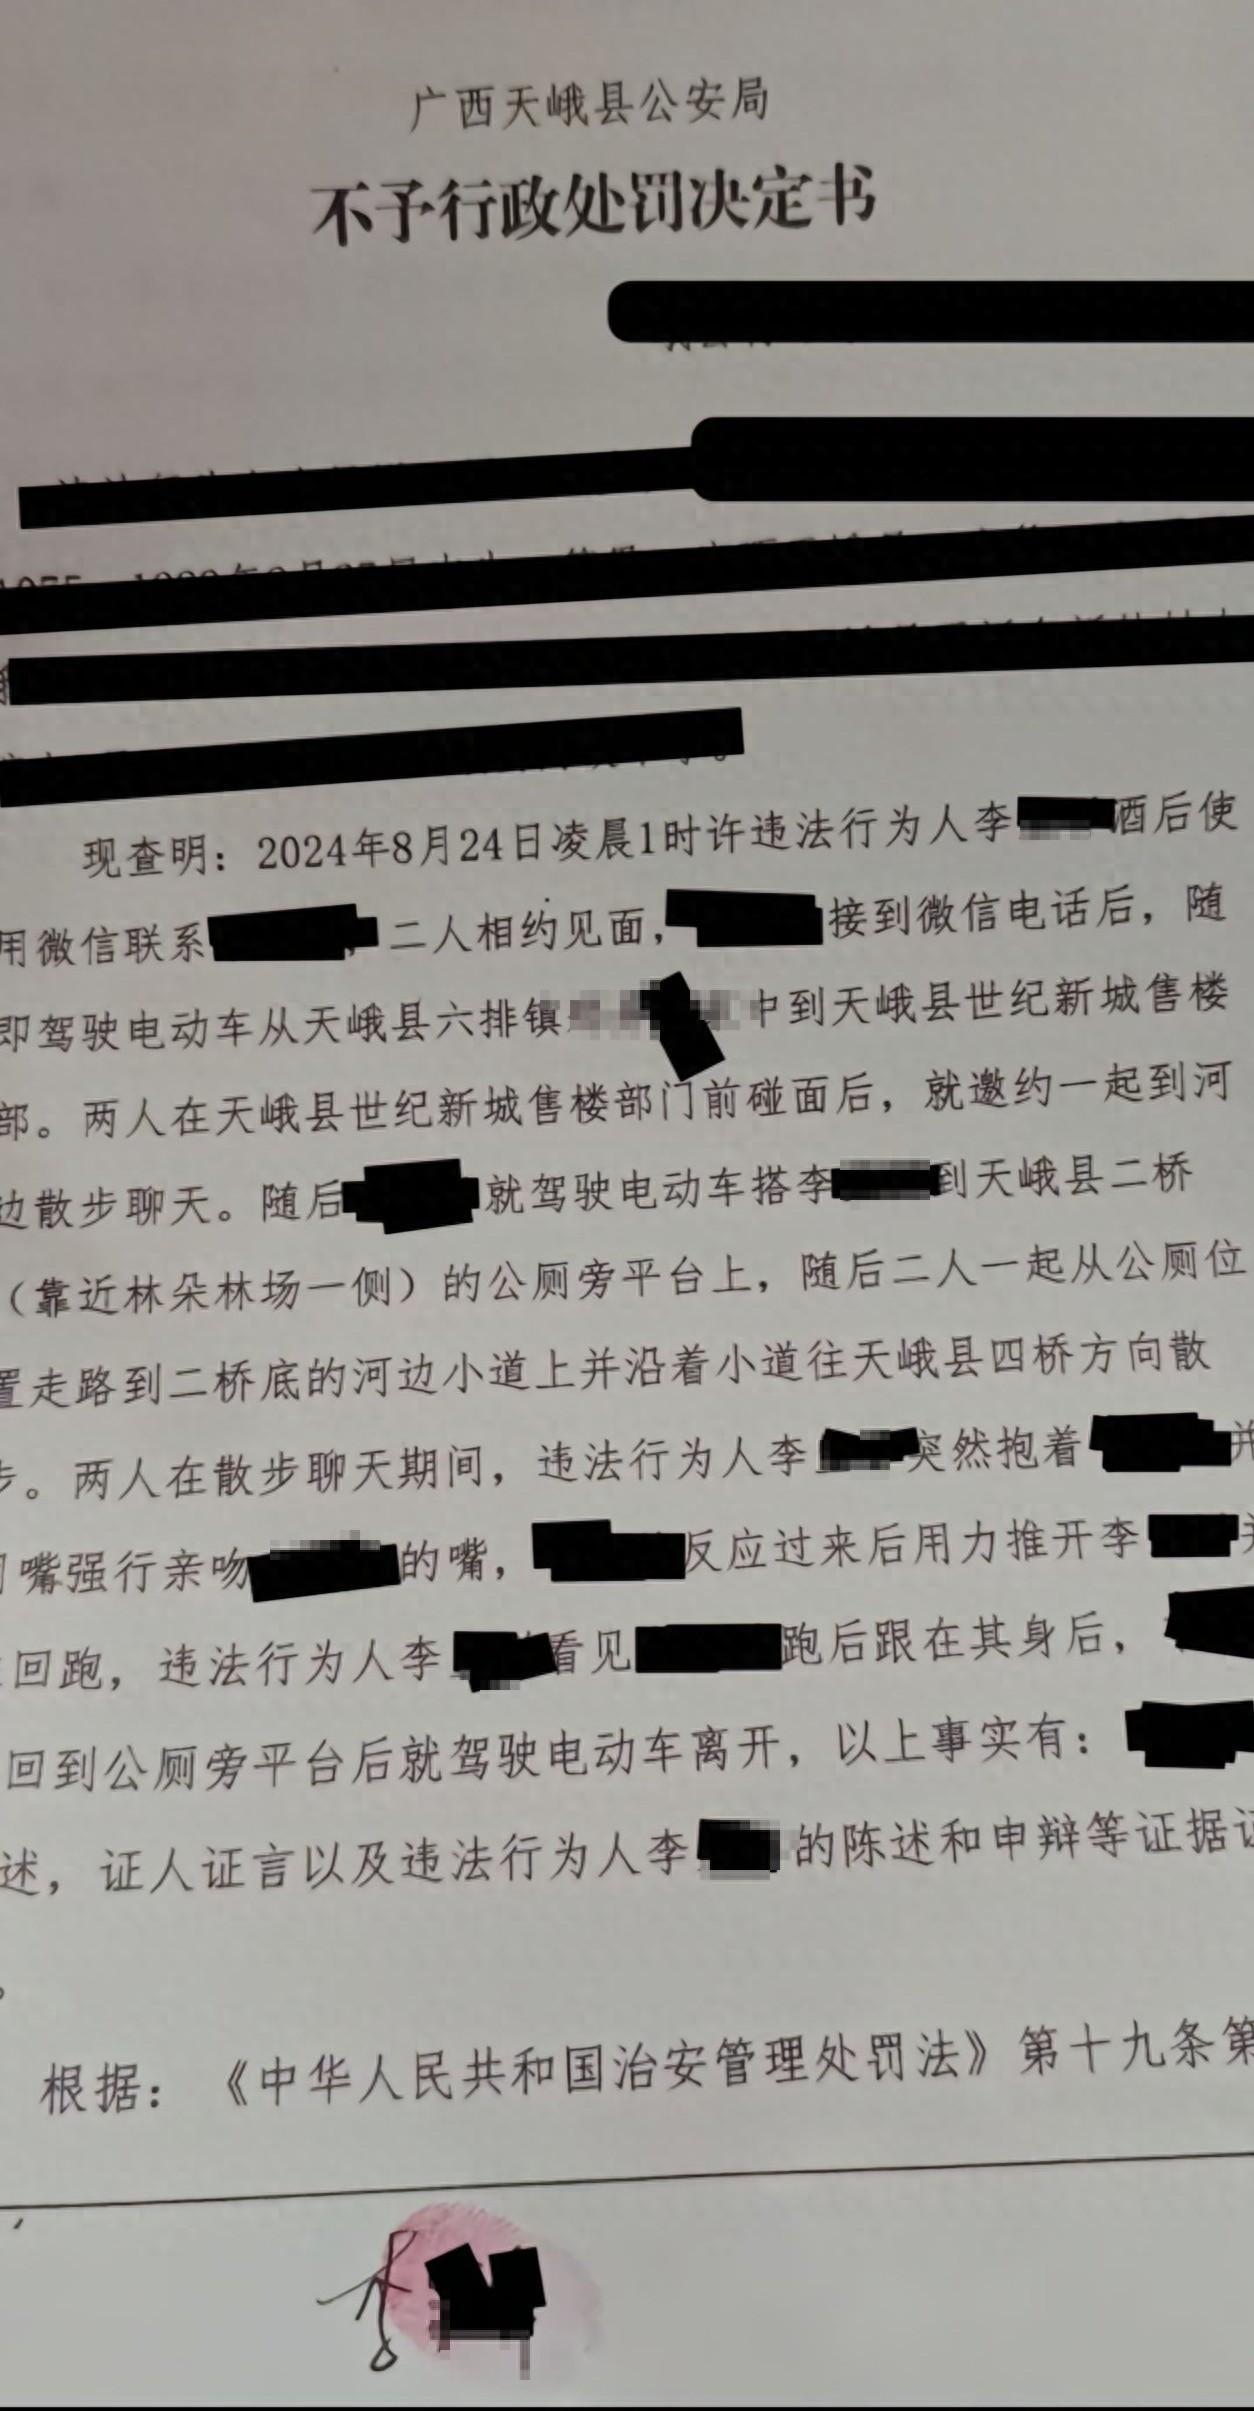 广西天峨县公安局
不予行政处罚决定书
现查明：2024年8月24日凌晨1时许违法行为人李 酒后使
用微信联系 ，二人相约见面， 接到微信电话后，随
即驾驶电动车从天峨县六排镇 中到天峨县世纪新城售楼
部。两人在天峨县世纪新城售楼部门前碰面后，就邀约一起到河
边散步聊天。随后 就驾驶电动车搭李 到天峨县二桥
（靠近林朵林场一侧）的公厕旁平台上，随后二人一起从公厕位
置走路到二桥底的河边小道上并沿着小道往天峨县四桥方向散
步。两人在散步聊天期间，违法行为人李 突然抱着 并
嘴强行亲吻 的嘴， 反应过来后用力推开李
回跑，违法行为人李 看见 跑后跟在其身后，
回到公厕旁平台后就驾驶电动车离开，以上事实有：
述，证人证言以及违法行为人李 的陈述和申辩等证据证
。
根据：《中华人民共和国治安管理处罚法》第十九条第
李